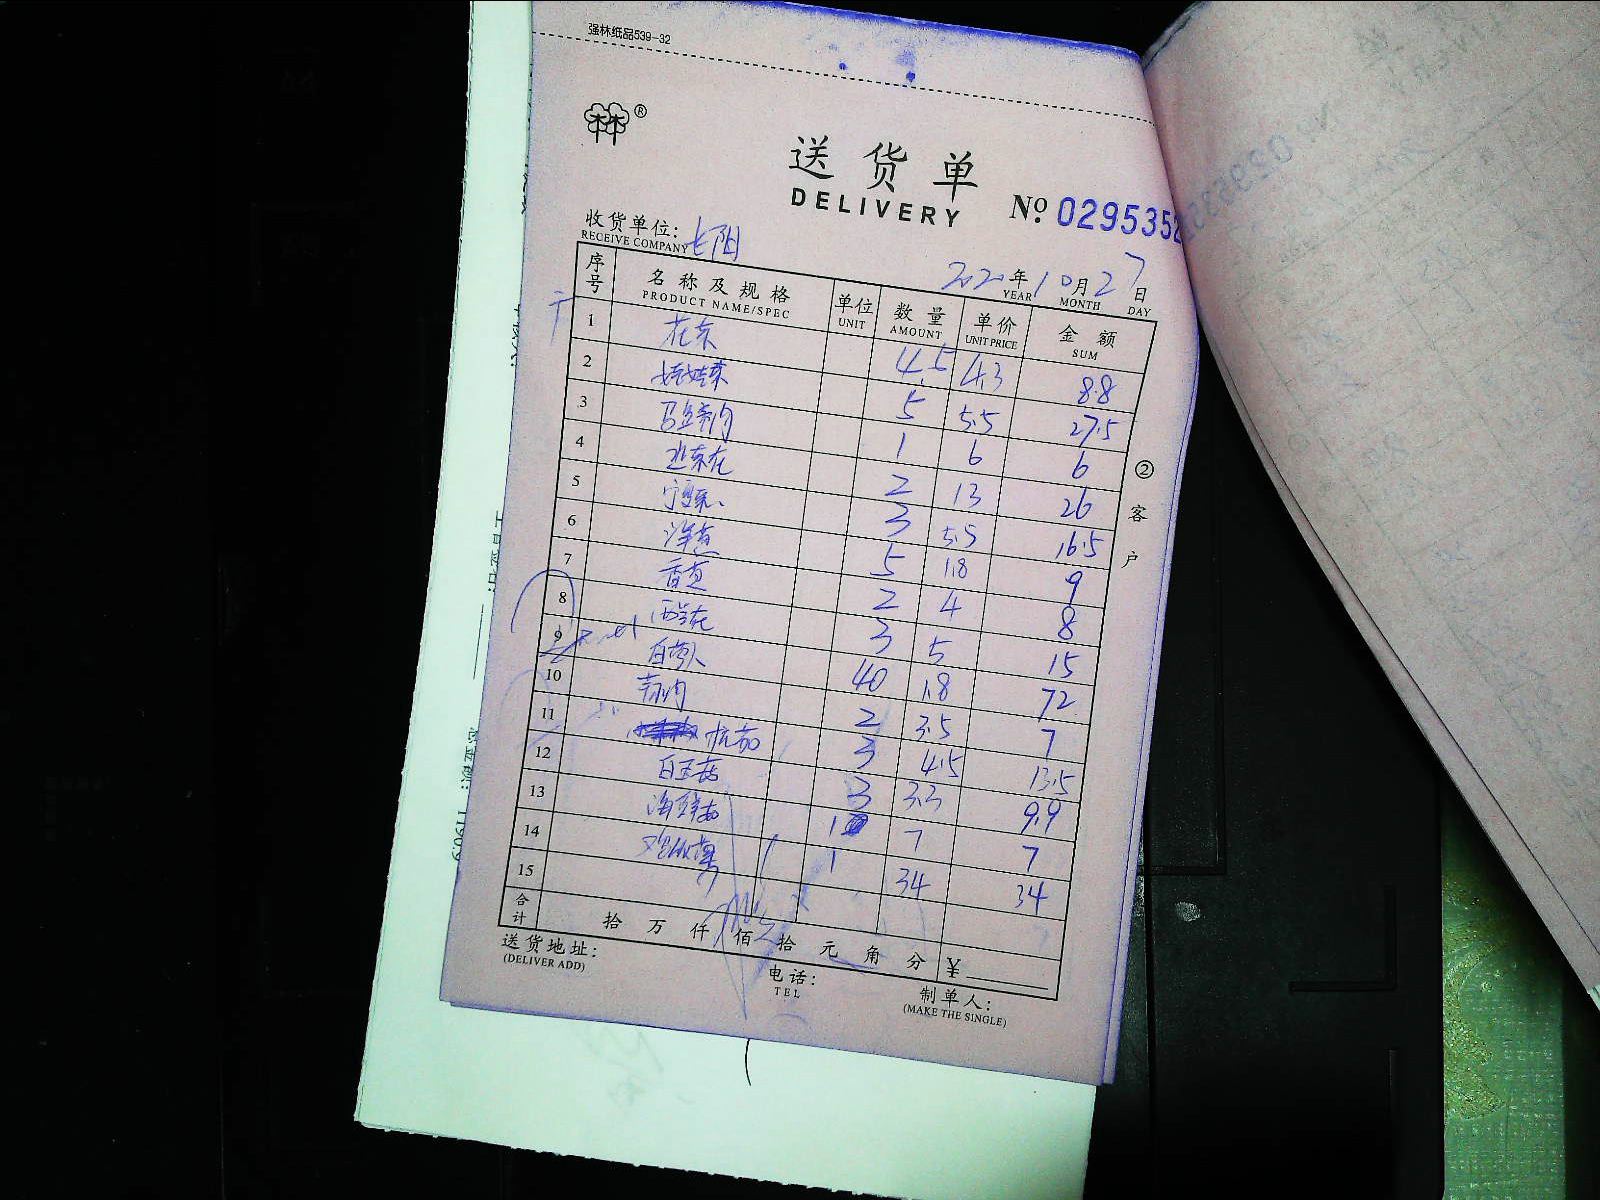 强林纸品539-32
林林®
送货单
DELIVERY
№ 0295352
收货单位: 七阳
RECEIVE COMPANY
2020年10月27日
YEAR MONTH DAY
序号 名称及规格 单位 数量 单价 金额
PRODUCT NAME/SPEC UNIT AMOUNT UNIT PRICE SUM
1 花菜 4.5 4.3 8.8
2 5 5.5 27.5
3 1 6 6
4 西兰花 2 13 26
5 3 5.5 16.5
6 洋芋 5 1.8 9
7 香 2 4 8
8 3 5 15
9 白 40 1.8 72
10 2 3.5 7
11 杭茄 3 4.5 13.5
12 白玉菇 3 3.3 9.9
13 海鲜菇 1 7 7
14 1 34 34
15
合计 拾万仟佰拾元角分 ¥
送货地址:
(DELIVER ADD)
电话:
TEL
制单人:
(MAKE THE SINGLE)
②客户